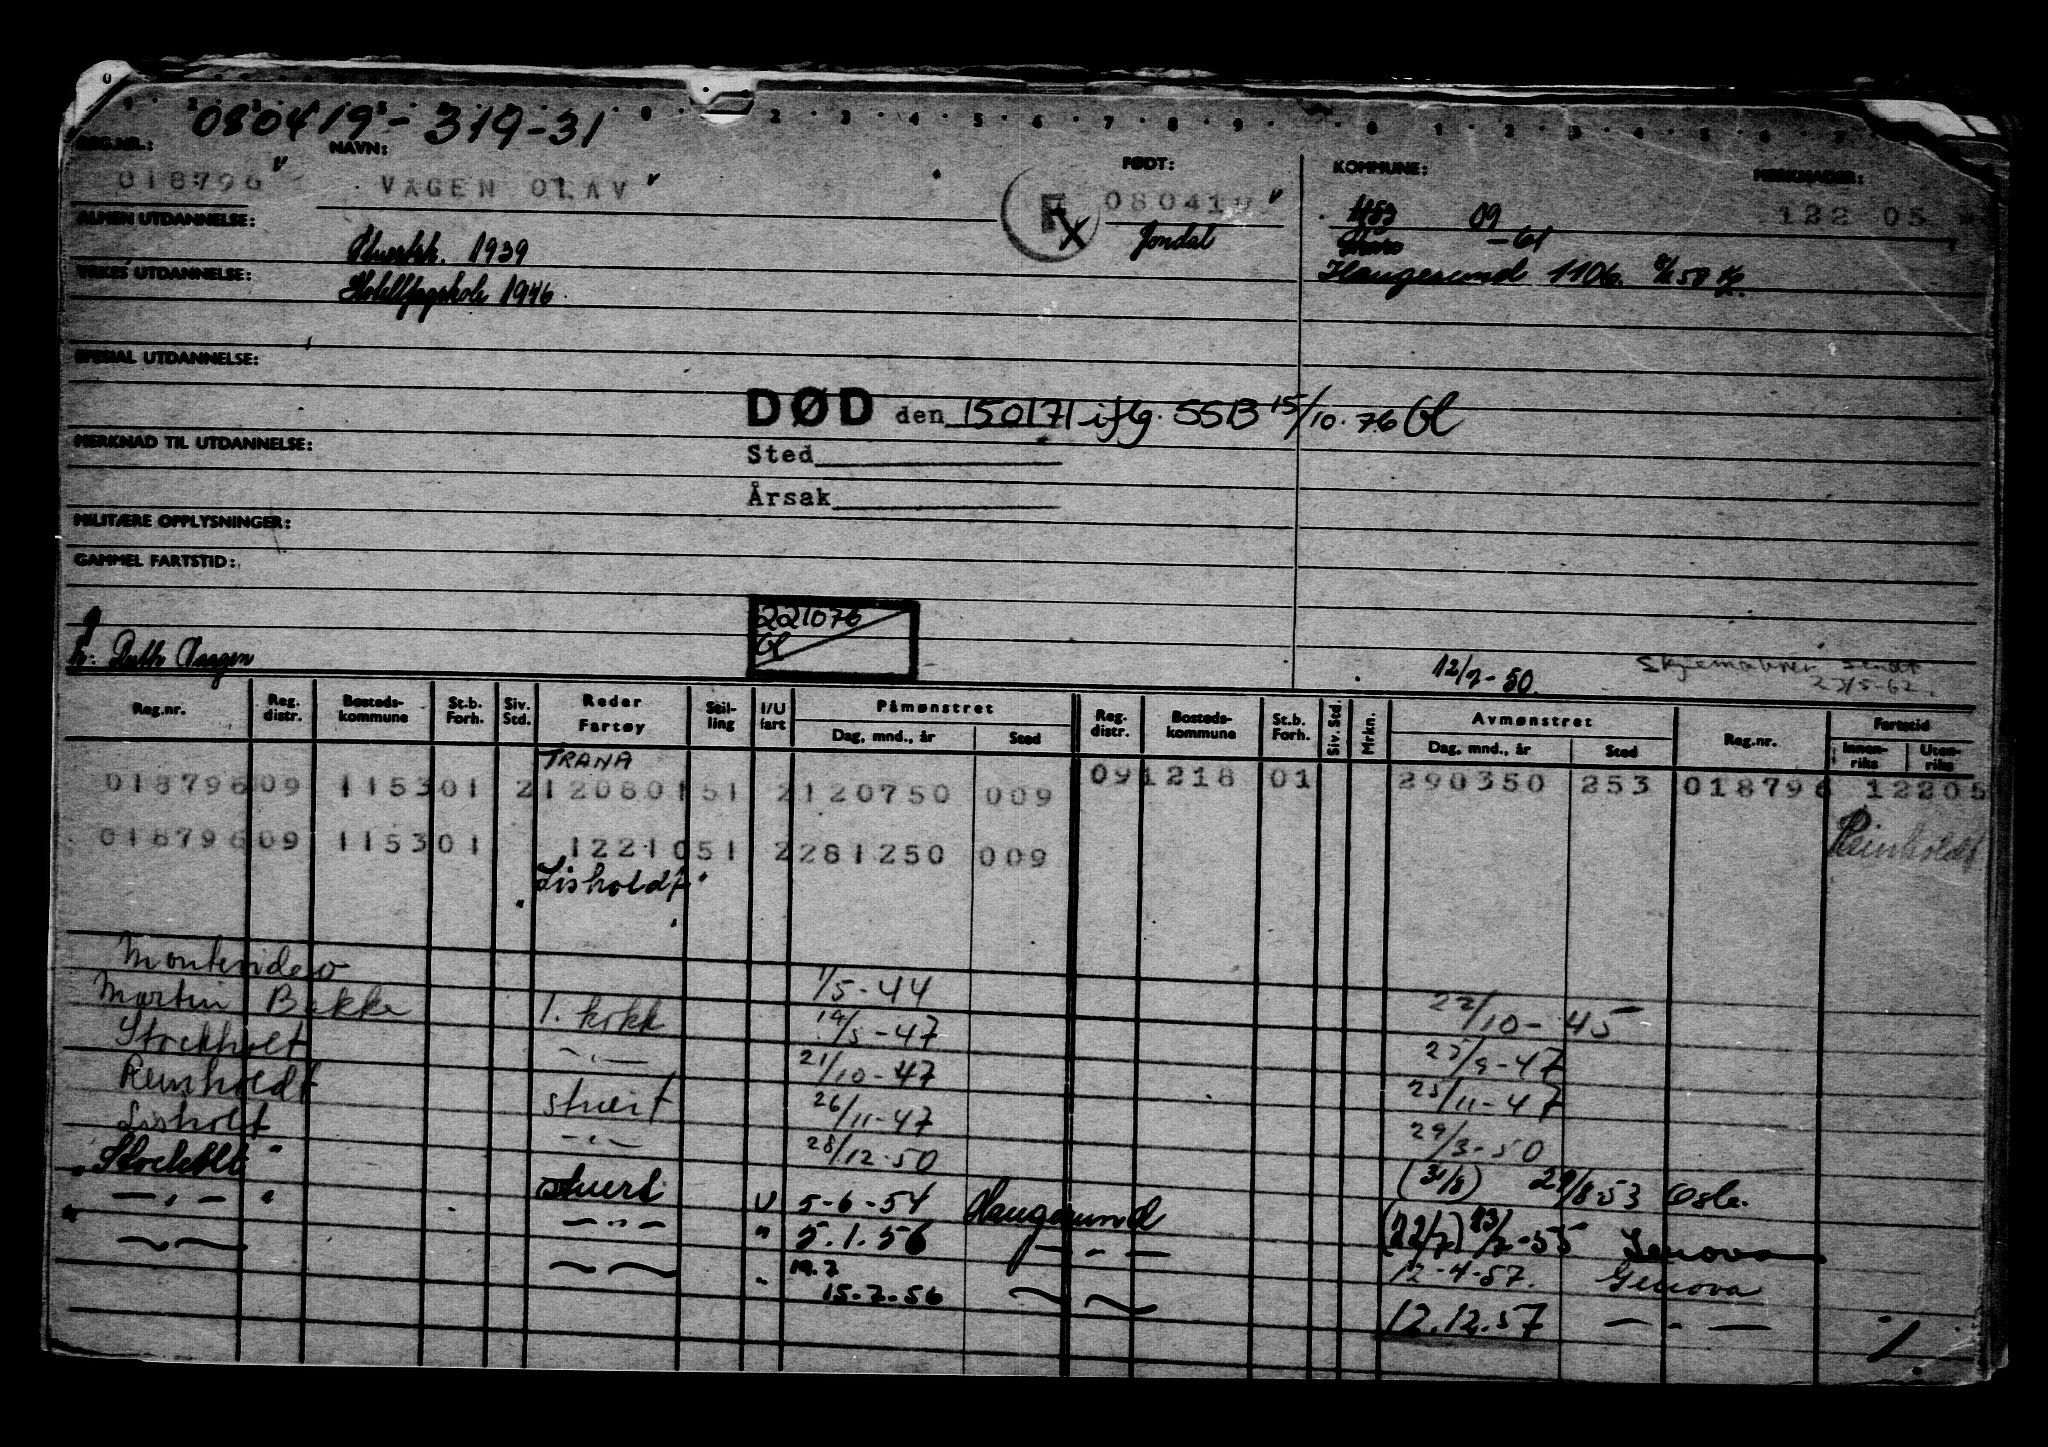 080419-319-31
REG.NR.: NAVN: FØDT: KOMMUNE: MERKNADER:
018796 VAGEN OLAV F X 080419 1153 09 122 05
ALMEN UTDANNELSE: Jondal -61
Stuertsk. 1939
YRKES UTDANNELSE: Haugesund 1106.
Hotellfagskole 1946
SPESIAL UTDANNELSE:
DØD den 150171 iflg. SSB 15/10.76
MERKNAD TIL UTDANNELSE:
Sted
Årsak
MILITÆRE OPPLYSNINGER:
GAMMEL FARTSTID:
221076
Ruth Vaagen
12/7-50. sendt
Reg.nr. Reg. distr. Bosteds-kommune St.b. Forh. Siv. Std. Reder Fartøy Stil-ling I/U fart Påmønstret Dag, mnd., år Sted Reg. distr. Bosteds-kommune St.b. Forh. Siv. Std. Mrkn. Avmønstret Dag, mnd., år Sted Reg.nr. Fartstid Innen-riks Uten-riks
TRANA
018796 09 1153 01 2 12080151 2 120750 009 09 1218 01 290350 253 018796 12205
Reinholdt
018796 09 1153 01 1221051 2 281250 009
Lisholdt
Montevideo 1/5-44 22/10-45
Martin Bakke 1. kokk 19/5-47 23/9-47
Stockholt -"- 21/10-47 25/11-47
Reinholdt stuert 26/11-47 29/3-50
Lisholt -"- 28/12-50 (31/8) 29/8-53 Oslo.
Stockholt stuert U 5-6-54 Haugesund (22/7) 23/7-55 Genova
-"- -"- " 5.1.56 -"- 12-4-57. Genova
-"- -"- " 19.7 15.7.56 -"- 12.12.57 -"-